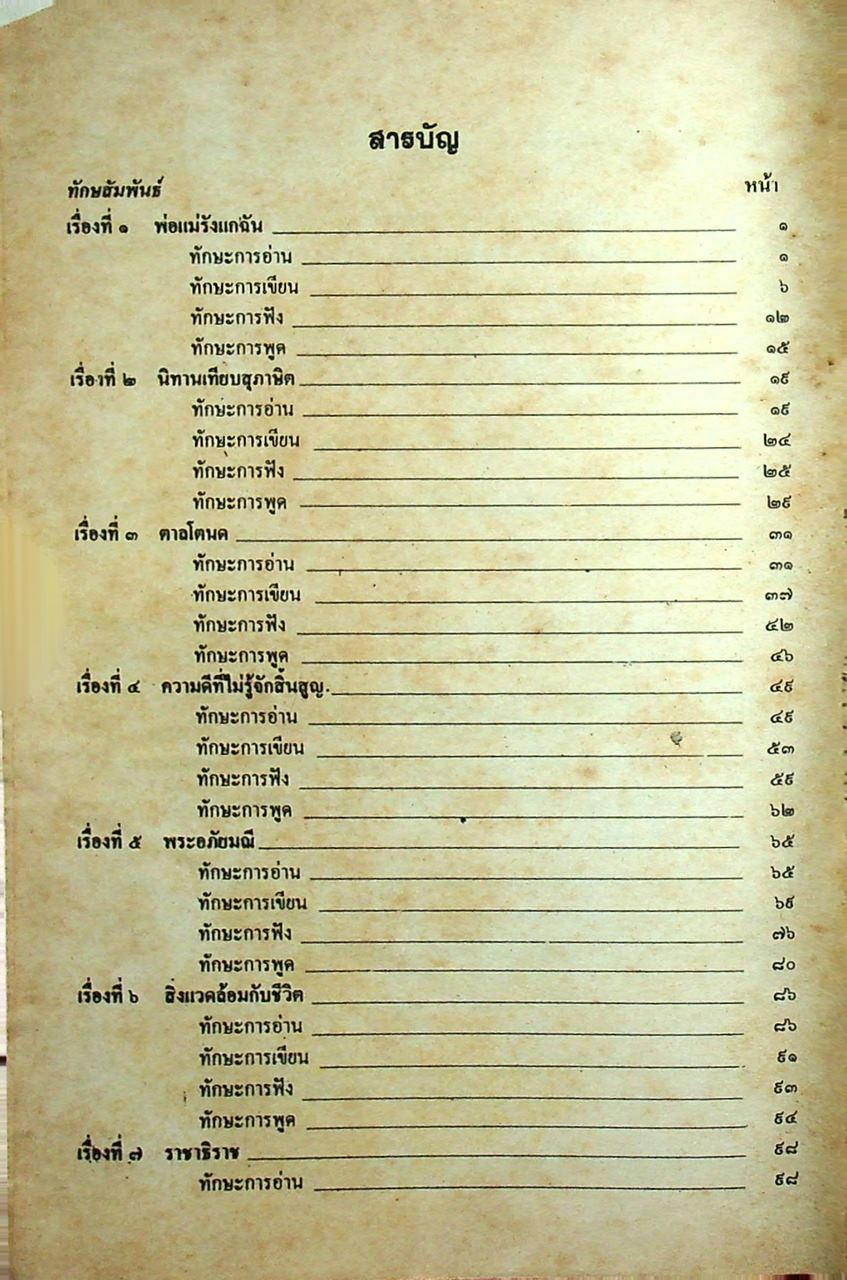 สารบัญ
ทักษสัมพันธ์ หน้า
เรื่องที่ ๑ พ่อแม่รังแกฉัน ๑
ทักษะการอ่าน ๑
ทักษะการเขียน ๖
ทักษะการฟัง ๑๒
ทักษะการพูด ๑๕
เรื่องที่ ๒ นิทานเทียบสุภาษิต ๑๙
ทักษะการอ่าน ๑๙
ทักษะการเขียน ๒๔
ทักษะการฟัง ๒๕
ทักษะการพูด ๒๙
เรื่องที่ ๓ ตาลโตนด ๓๑
ทักษะการอ่าน ๓๑
ทักษะการเขียน ๓๗
ทักษะการฟัง ๔๒
ทักษะการพูด ๔๖
เรื่องที่ ๔ ความดีที่ไม่รู้จักสิ้นสูญ ๔๙
ทักษะการอ่าน ๔๙
ทักษะการเขียน ๕๓
ทักษะการฟัง ๕๙
ทักษะการพูด ๖๒
เรื่องที่ ๕ พระอภัยมณี ๖๕
ทักษะการอ่าน ๖๕
ทักษะการเขียน ๖๙
ทักษะการฟัง ๗๖
ทักษะการพูด ๘๐
เรื่องที่ ๖ สิ่งแวดล้อมกับชีวิต ๘๖
ทักษะการอ่าน ๘๖
ทักษะการเขียน ๙๑
ทักษะการฟัง ๙๓
ทักษะการพูด ๙๔
เรื่องที่ ๗ ราชาธิราช ๙๘
ทักษะการอ่าน ๙๘